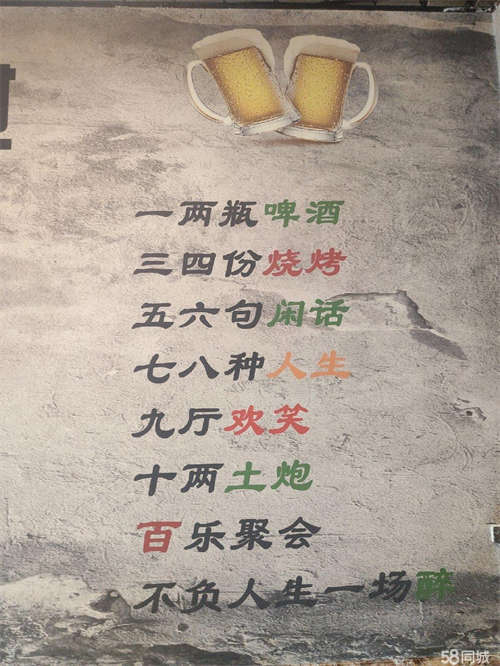 一两瓶啤酒
三四份烧烤
五六句闲话
七八种人生
九厅欢笑
十两土炮
百乐聚会
不负人生一场醉
58同城